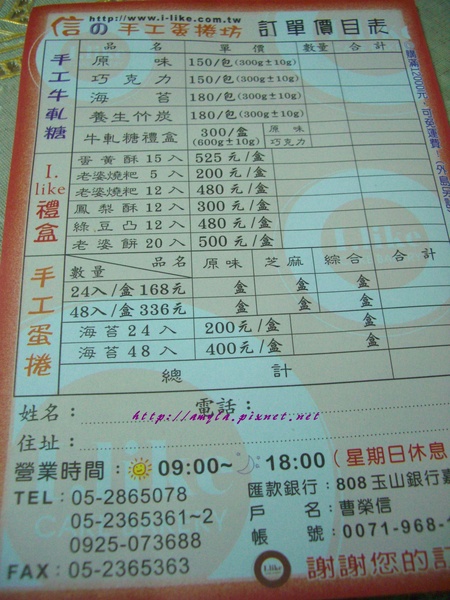 http://www.i-like.com.tw
信の手工蛋捲坊 訂單價目表
手工牛軋糖
品名 單價 數量 合計
原味 150/包(300g±10g)
巧克力 150/包(300g±10g)
海苔 180/包(300g±10g)
養生竹炭 180/包(300g±10g)
牛軋糖禮盒 300/盒 (600g±10g) 原味 巧克力
I.like禮盒
蛋黃酥15入 525元/盒
老婆燒粑5入 200元/盒
老婆燒粑12入 480元/盒
鳳梨酥12入 300元/盒
綠豆凸12入 480元/盒
老婆餅20入 500元/盒
手工蛋捲
數量 品名 原味 芝麻 綜合 合計
24入/盒168元 盒 盒 盒
48入/盒336元 盒 盒 盒
海苔24入 200元/盒 盒
海苔48入 400元/盒 盒
總計
購滿2000元,可免運費
姓名: 電話:
http://amyln.pixnet.net
住址:
營業時間: 09:00~ 18:00(星期日休息
TEL:05-2865078
05-2365361~2
0925-073688
FAX:05-2365363
匯款銀行:808玉山銀行嘉
戶名:曹榮信
帳號:0071-968-1
I.like
謝謝您的訂